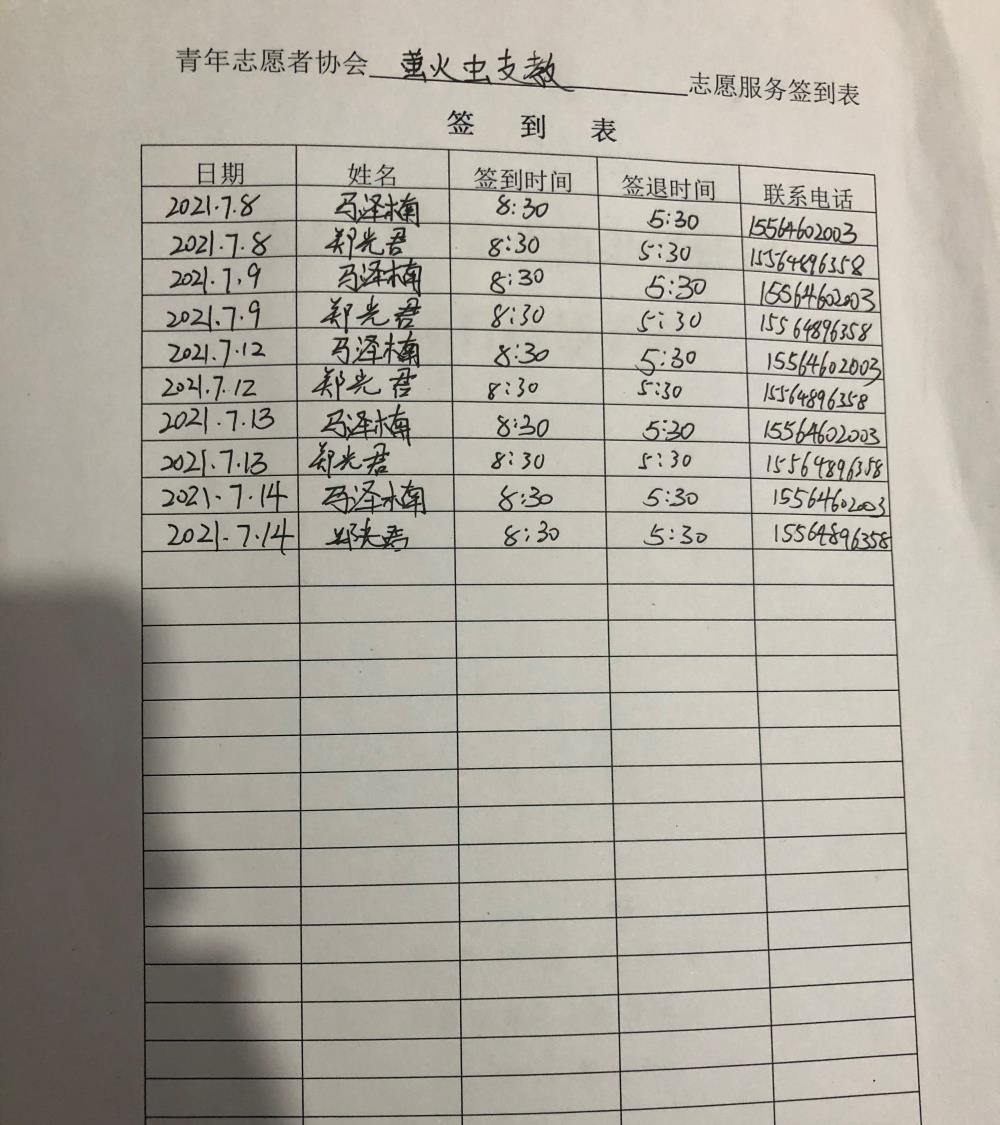 青年志愿者协会 萤火虫支教 志愿服务签到表
签 到 表
日期 姓名 签到时间 签退时间 联系电话
2021.7.8 马泽楠 8:30 5:30 15564602003
2021.7.8 郑光君 8:30 5:30 15564896358
2021.7.9 马泽楠 8:30 5:30 15564602003
2021.7.9 郑光君 8:30 5:30 15564896358
2021.7.12 马泽楠 8:30 5:30 15564602003
2021.7.12 郑光君 8:30 5:30 15564896358
2021.7.13 马泽楠 8:30 5:30 15564602003
2021.7.13 郑光君 8:30 5:30 15564896358
2021.7.14 马泽楠 8:30 5:30 15564602003
2021.7.14 郑光君 8:30 5:30 15564896358